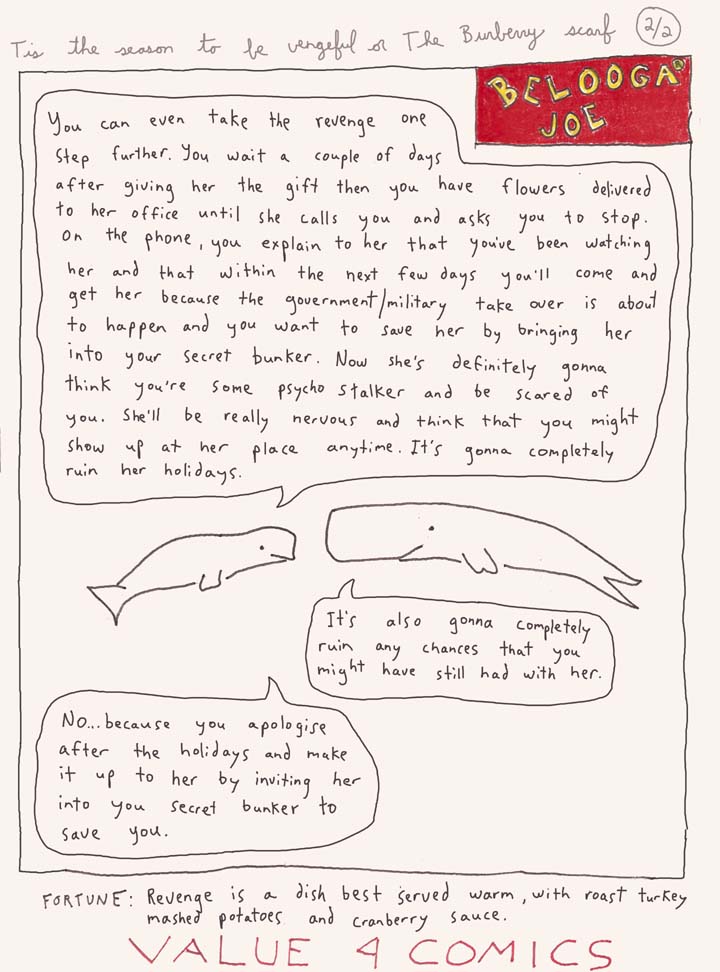 Tis the season to be vengeful or The Burberry scarf 2/2
BELOOGA
JOE
You can even take the revenge one
step further. You wait a couple of days
after giving her the gift then you have flowers delivered
to her office until she calls you and asks you to stop.
On the phone, you explain to her that you've been watching
her and that within the next few days you'll come and
get her because the government/military take over is about
to happen and you want to save her by bringing her
into your secret bunker. Now she's definitely gonna
think you're some psycho stalker and be scared of
you. She'll be really nervous and think that you might
show up at her place anytime. It's gonna completely
ruin her holidays.
It's also gonna completely
ruin any chances that you
might have still had with her.
No...because you apologise
after the holidays and make
it up to her by inviting her
into you secret bunker to
save you.
FORTUNE: Revenge is a dish best served warm, with roast turkey
mashed potatoes and cranberry sauce.
VALUE 4 COMICS